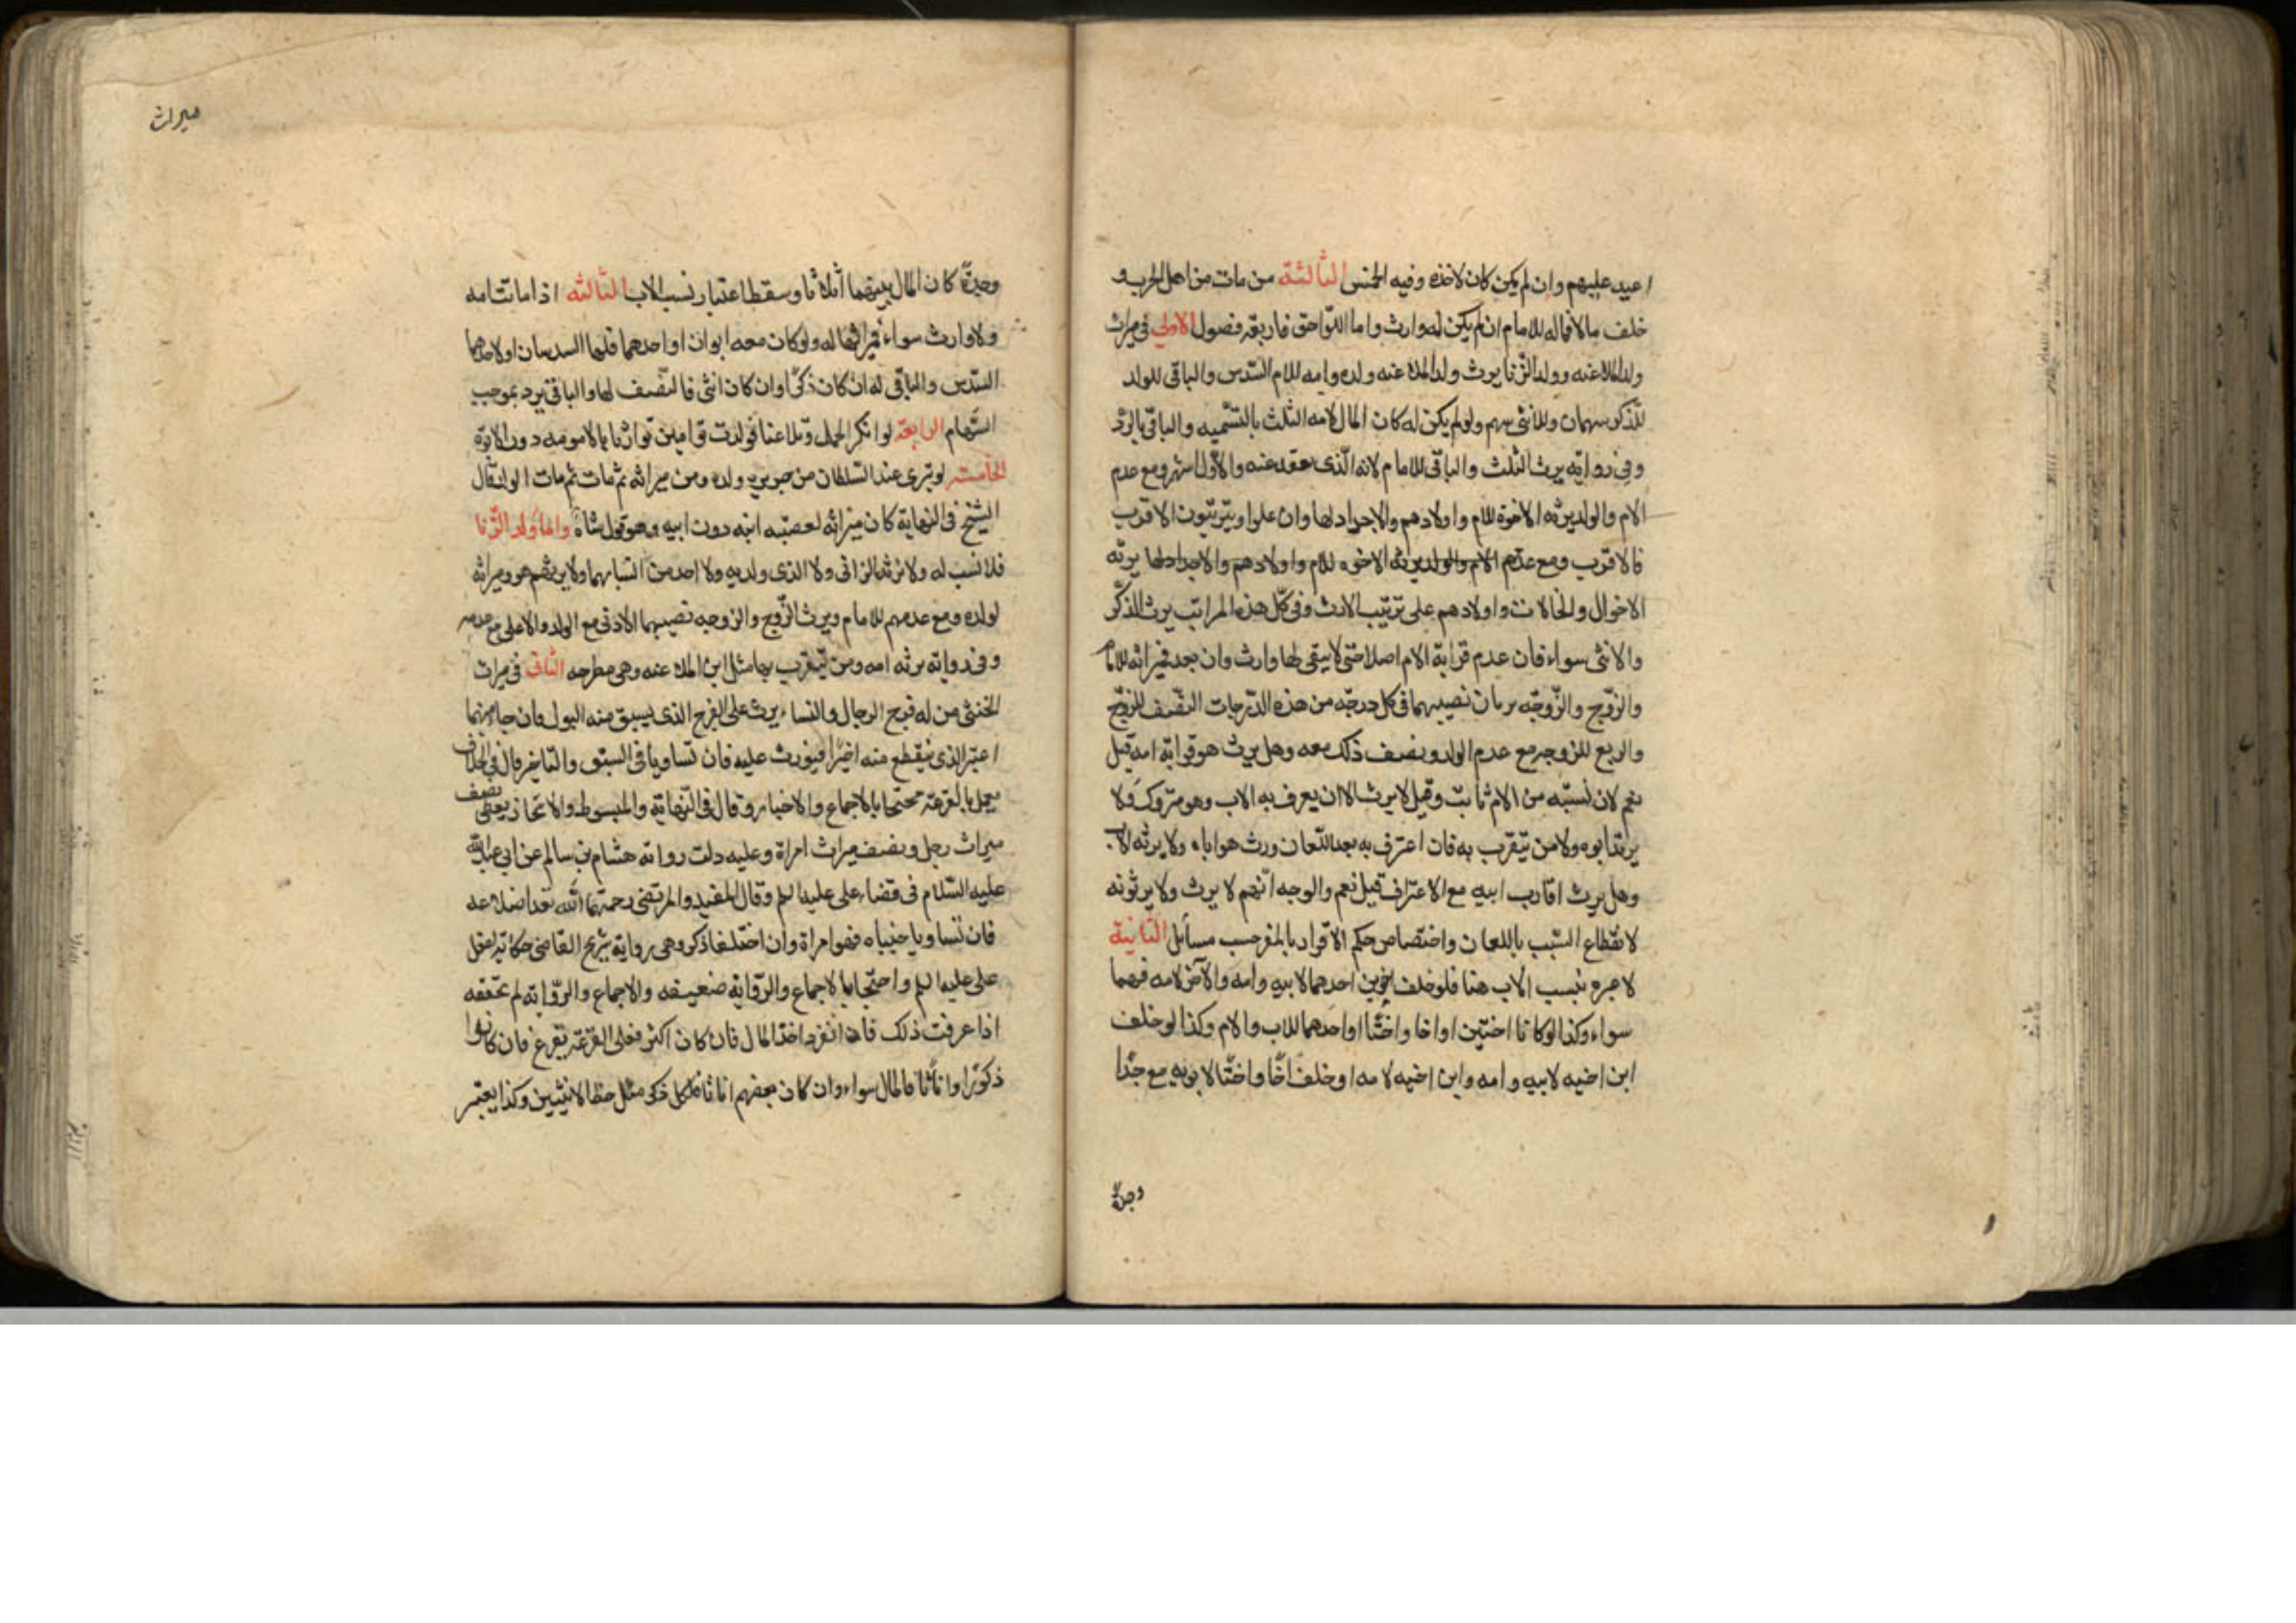 اعيد عليهم وان لم يكن كان لاخذه وفيه الخمس الثالثة من مات من اهل الحرب و
خلف مالا فماله للامام ان لم يكن له وارث واما اللواحق فاربعة فصول الاول فى ميراث
ولد الملاعنه وولد الزنا يرث ولد الملاعنه ولده وامه للام السدس والباقى للولد
للذكر سهمان وللانثى سهم ولو لم يكن له كان المال لامه الثلث بالتسميه والباقى بالرد
وفى رواية يرث الثلث والباقى للامام لانه الذى يعقد عنه والاول اشهر ومع عدم
الام والولد يرثه الاخوة للام واولادهم والاجداد لها وان علوا ويترتبون الاقرب
فالاقرب ومع عدم الام والولد يرثه الاخوه للام واولادهم والاجداد لها يرثه
الاخوال والخالات واولادهم على ترتيب الارث وفى كل هذه المراتب يرث الذكر
والانثى سواء فان عدم قرابة الام اصلا حتى لا يبقى لها وارث وان بعد فميراثه للامام
والزوج والزوجه يرثان نصيبهما فى كل درجه من هذه الدرجات النصف للزوج
والربع للزوجه مع عدم الولد ونصف ذلك معه وهل يرث هو قرابة امه قيل
نعم لان نسبه من الام ثابت وقيل لا يرث الا ان يعرف به الاب وهو متروك ولا
يرثه ابوه ولا من يتقرب به فان اعترف به بعد اللعان ورث هو اباه ولا يرثه الاب
وهل يرث اقارب ابيه مع الاعتراف قيل نعم والوجه انهم لا يرث ولا يرثونه
لانقطاع النسب باللعان واختصاص حكم الاقرار بالمقر حسب مسائل الثانية
لا عبره بنسب الاب هنا فلو خلف اخوين احدهما لابيه وامه والآخر لامه فهما
سواء وكذا لو كانا اختين او اخا واختا او احدهما للاب والام وكذا لو خلف
ابن اخيه لابيه وامه وابن اخيه لامه او خلف اخا واختا لابويه مع جدا
وجدة
ميراث
وجدة كان المال بينهما أثلاثا وسقط اعتبار نسب الاب الثالثه اذا ماتت امه
ولا وارث سواه فميراثها له ولو كان معه ابوان او احدهما فلهما السدسان او لاحدهما
السدس والباقى له ان كان ذكرا وان كان انثى فالنصف لها والباقى يرد بموجب
السهام الرابعة لو انكر الحمل وتلاعنا فولدت توامين توارثا بالامومه دون الابوة
الخامسه لو تبرى عند السلطان من جريرة ولده ومن ميراثه ثم مات الولد قال
الشيخ فى النهاية كان ميراثه لعصبه ابيه دون ابيه وهو قول شاذ واما ولد الزنا
فلا نسب له ولا يرثه الزانى ولا الذى ولدته ولا احد من انسابهما ولا يرثهم هو وميراثه
لولده ومع عدمهم للامام ويرث الزوج والزوجه نصيبهما الادنى مع الولد والاعلى مع عدمه
وفى رواية يرثه امه ومن يتقرب بها مثل ابن الملاعنه وهى مطرحه الثانى فى ميراث
الخنثى من له فرج الرجال والنساء يرث على الفرج الذى يسبق منه البول فان جاء منهما
اعتبر الذى ينقطع منه اخيرا فيورث عليه فان تساويا فى السبق والتاخير قال فى الخلاف
يعمل بالقرعة محتجا بالاجماع والاخبار وقال فى النهاية والمبسوط والايجاز يعطى نصف
ميراث رجل ونصف ميراث امراة وعليه دلت رواية هشام بن سالم عن ابى عبدالله
عليه السلام فى قضاء على عليه السلم وقال المفيد والمرتضى رحمهما الله تعد اضلاعه
فان تساويا جنباه فهو امراة وان اختلفا ذكر وهى رواية شريح القاضى حكاية لفعل
على عليه السلم واحتجا بالاجماع والرواية ضعيفه والاجماع والروايه لم نتحققه
اذا عرفت ذلك فان انفرد اخذ المال فان كان اكثر فعلى القرعة يقرع فان كانوا
ذكورا او اناثا فالمال سواء وان كان بعضهم اناثا فلكل ذكر مثل حظ الانثيين وكذا يعتبر